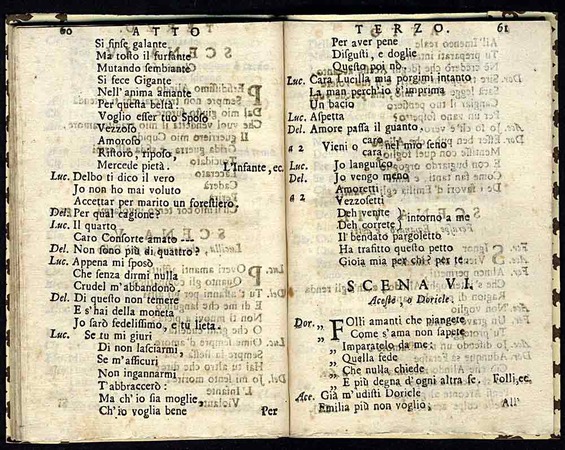 60 ATTO
Si finse galante
Ma tosto il furfante
Mutando sembiante
Si fece Gigante
Nell'anima amante
Per questa beltà.
Voglio esser tuo Sposo
Vezzoso
Amoroso
Ristoro, riposo,
Mercede pietà. L'Infante, ec.
Luc. Delbo ti dico il vero
Jo non ho mai voluto
Accettar per marito un forestiero.
Del. Per qual cagione?
Luc. Il quarto
Caro Consorte amato ---
Del. Non sono più di quattro?
Luc. Appena mi sposò
Che senza dirmi nulla
Crudel m'abbandonò.
Del. Di questo non temere
E s'hai della moneta
Jo sarò fedelissimo, e tu lieta.
Luc. Se tu mi giuri
Di non lasciarmi,
Se m'assicuri
Non ingannarmi
T'abbraccerò:
Ma ch'io sia moglie,
Ch'io voglia bene
Per
TERZO. 61
Per aver pene
Disgusti, e doglie
Questo poi nò.
Luc. Cara Lucilla mia porgimi intanto
La man perch'io g'imprima
Un bacio
Luc. Aspetta
Del. Amore passa il guanto.
a 2 Vieni o caro cara nel mio seno
Luc. Jo languisco
Del. Jo vengo meno
Amoretti
a 2 Vezzosetti
Deh venite
Deh correte) intorno a me
Il bendato pargoletto
Ha trafitto questo petto
Gioia mia per chi? per te.
SCENA VI.
Aceste, e Doricle.
Dor. „ Folli amanti che piangete
„ Come s'ama non sapete
„ Imparatelo da me:
„ Quella fede
„ Che nulla chiede
„ E più degna d'ogni altra fe. Folli, ec.
Ace. Già m'udisti Doricle
Emilia più non voglio;
All'